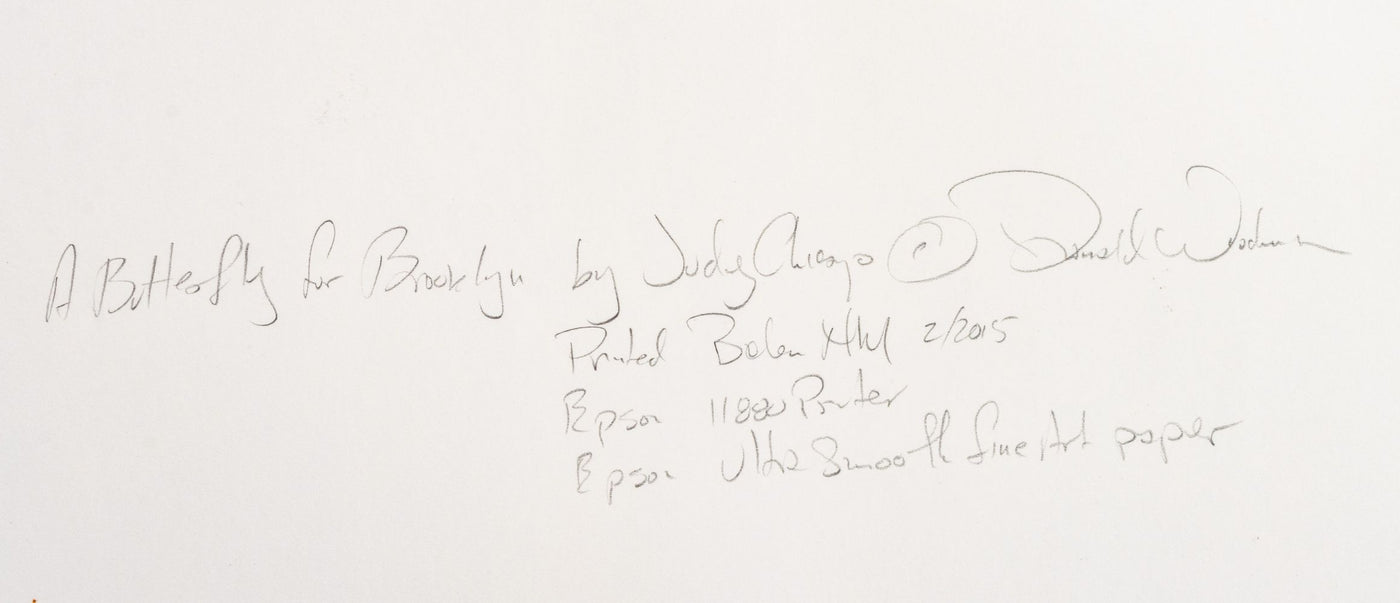 A Butterfly for Brooklyn by Judy Chicago © Donald Woodman
Printed Belen NM 2/2015
Epson 11880 Printer
Epson Ultra Smooth fine Art paper